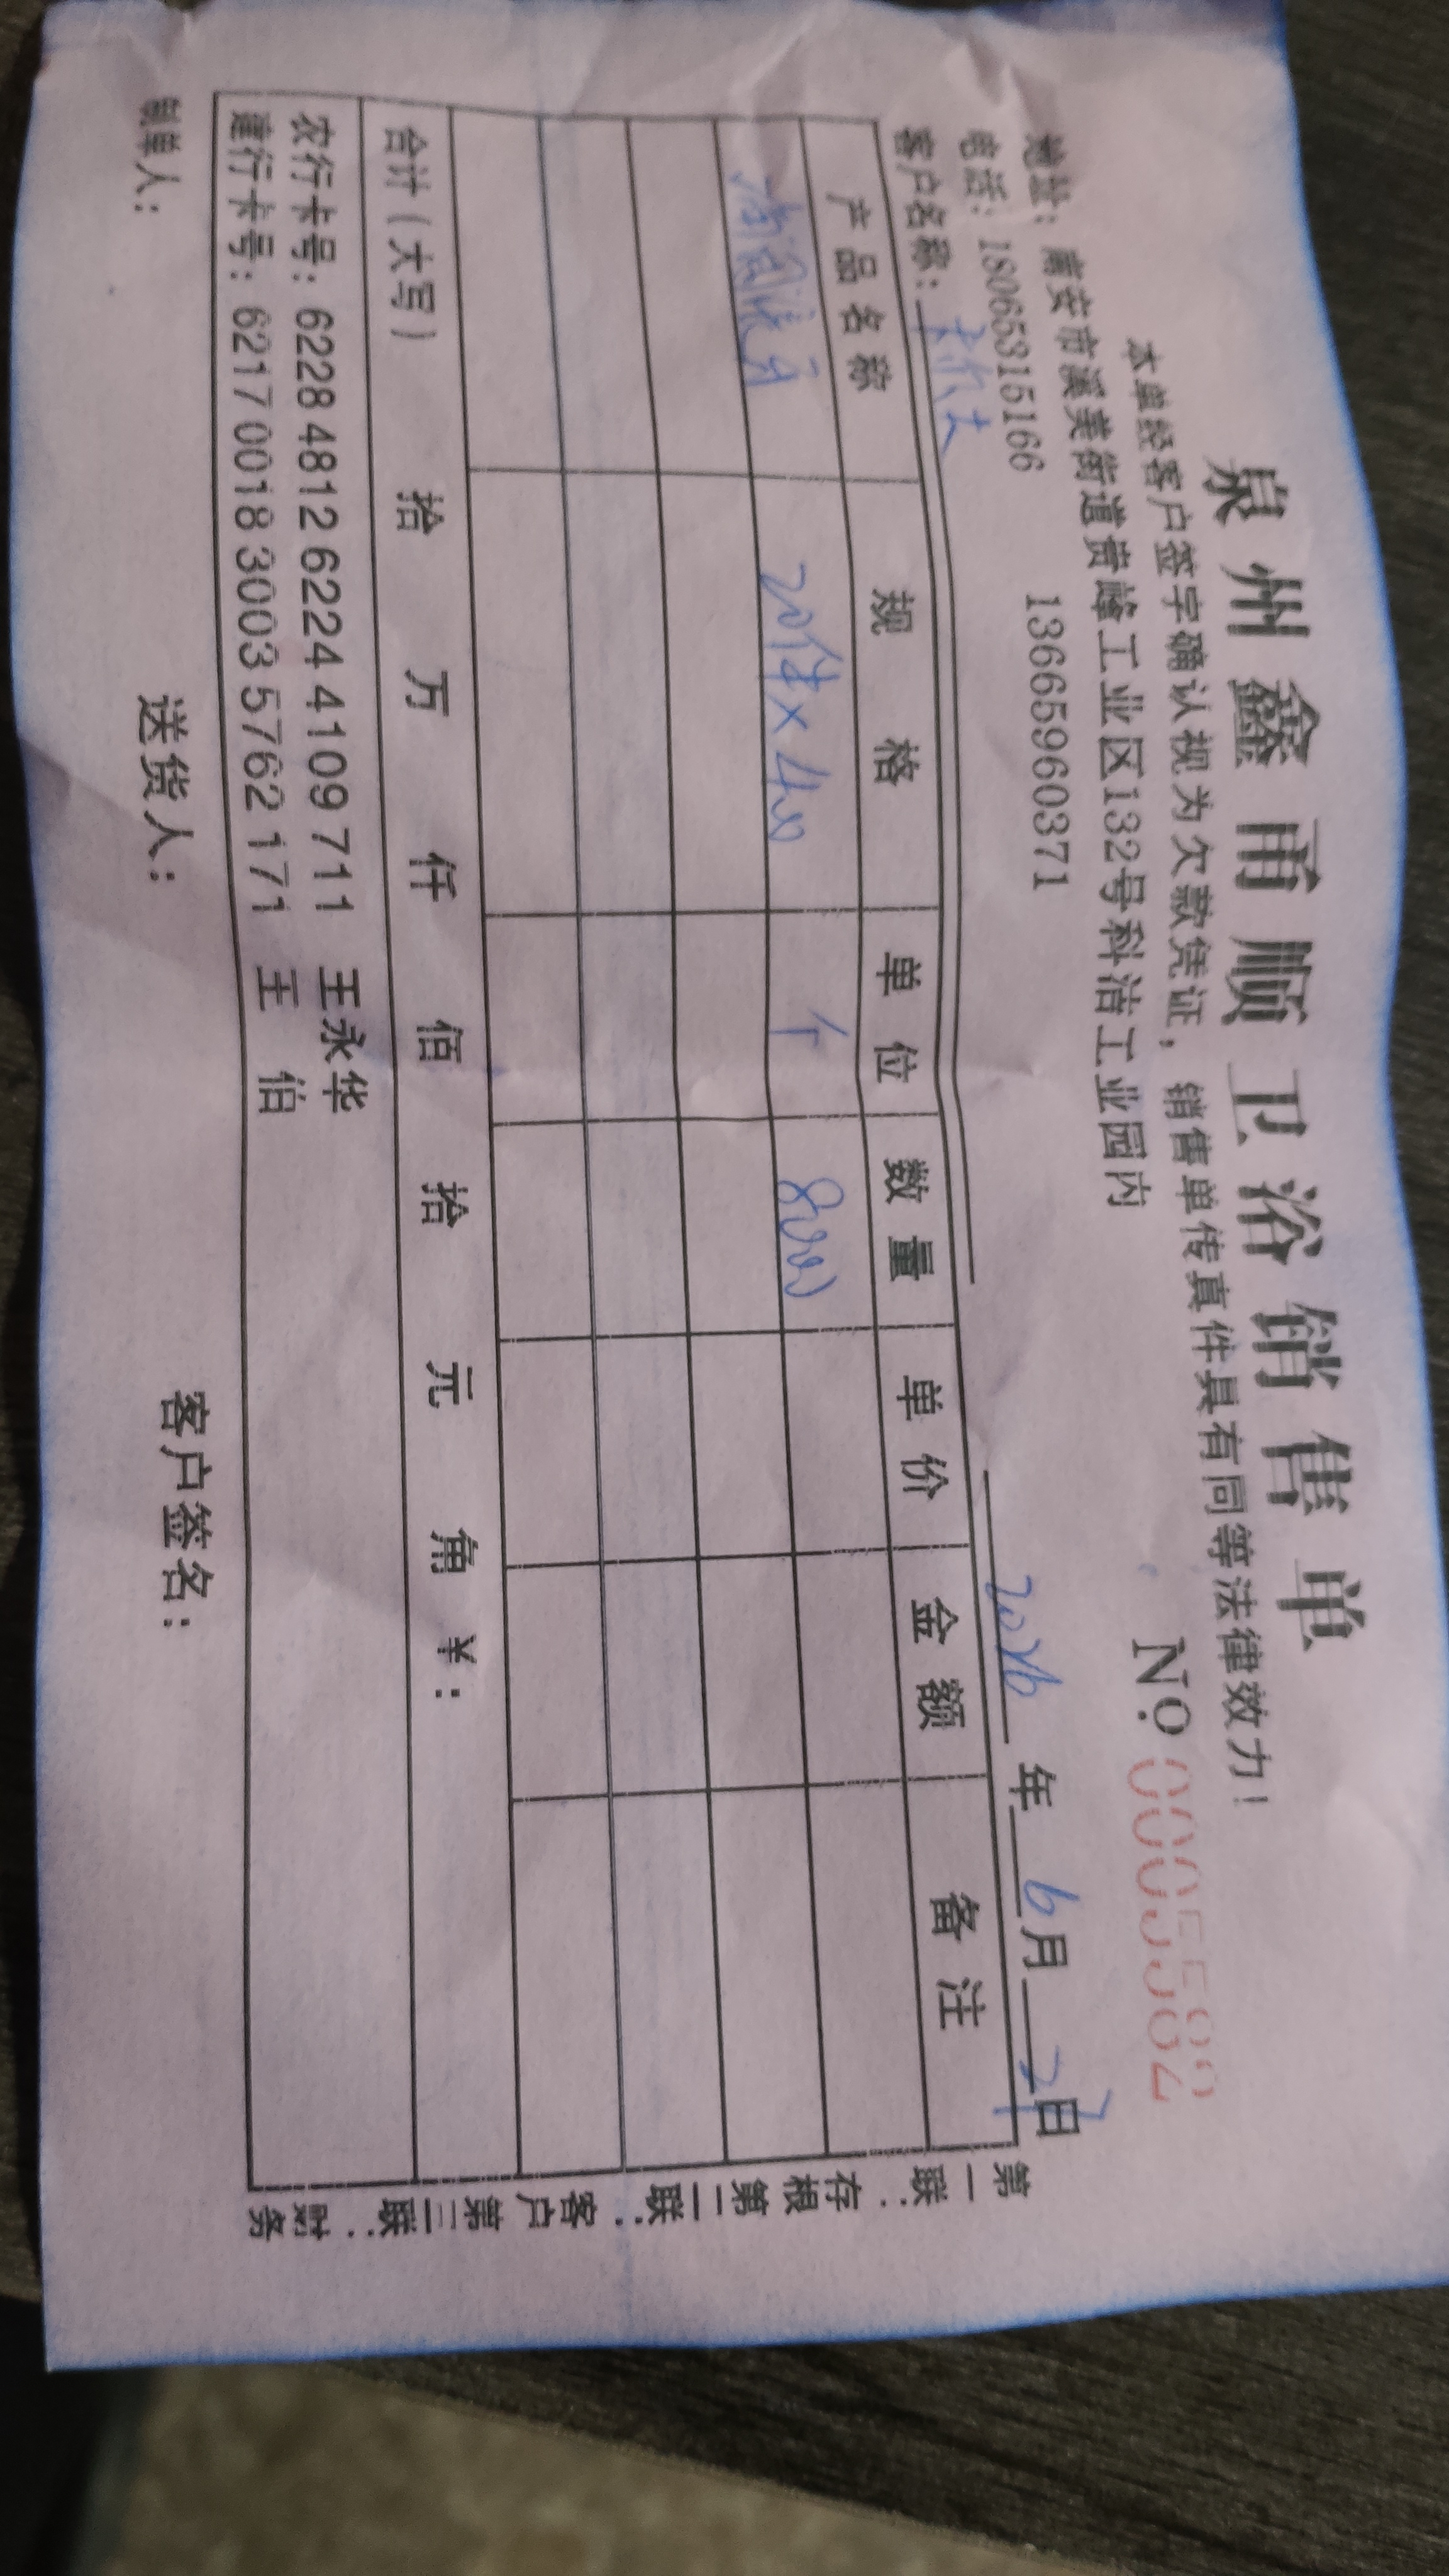 泉州鑫甬顺卫浴销售单
本单经客户签字确认视为欠款凭证，销售单传真件具有同等法律效力！
地址：南安市溪美街道贵峰工业区132号科洁工业园内
No 0005582
电话：18065315166 13665960371
客户名称： 2026年6月27日
产品名称 规格 单位 数量 单价 金额 备注
20件×400 个 8000
合计（大写） 拾 万 仟 佰 拾 元 角 ￥：
农行卡号：6228 4812 6224 4109 711 王永华
建行卡号：6217 0018 3003 5762 171 王伯
制单人： 送货人： 客户签名：
第一联：存根 第二联：客户 第三联：财务